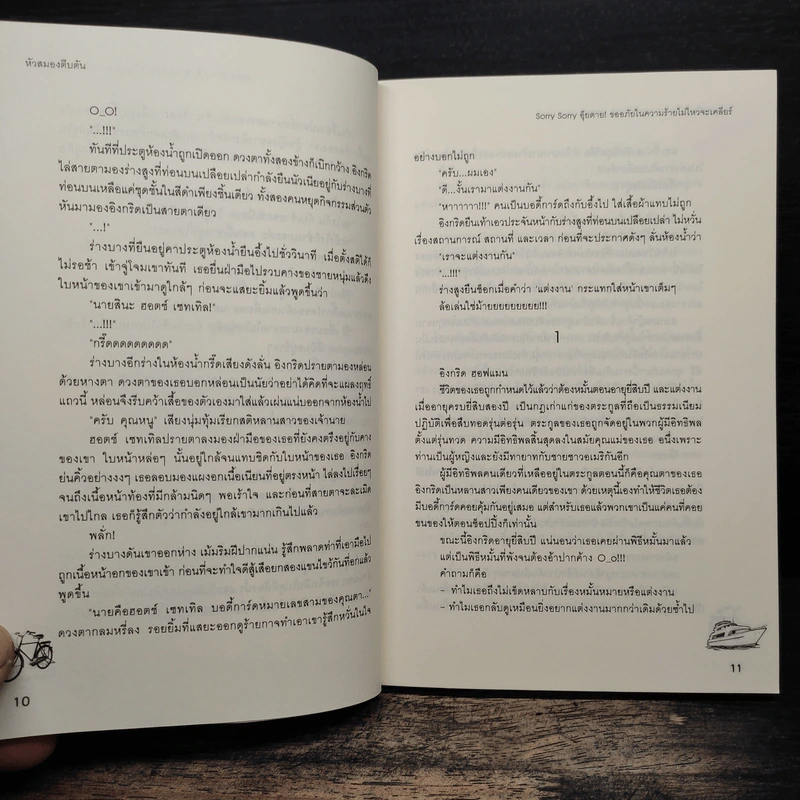 หัวสมองตีบตัน
O_O!
"...!!!"
ทันทีที่ประตูห้องน้ำถูกเปิดออก ดวงตาทั้งสองข้างก็เบิกกว้าง อิงกริด
ไล่สายตามองร่างสูงที่ท่อนบนเปลือยเปล่ากำลังยืนนัวเนียอยู่กับร่างบางที่
ท่อนบนเหลือแค่ชุดชั้นในสีดำเพียงชิ้นเดียว ทั้งสองคนหยุดกิจกรรมส่วนตัว
หันมามองอิงกริดเป็นสายตาเดียว
"...!"
ร่างบางที่ยืนอยู่คาประตูห้องน้ำยืนอึ้งไปชั่ววินาที เมื่อตั้งสติได้ก็
ไม่รอช้า เข้าจู่โจมเขาทันที เธอยื่นฝ่ามือไปรวบคางของชายหนุ่มแล้วดึง
ใบหน้าของเขาเข้ามาดูใกล้ๆ ก่อนจะแสยะยิ้มแล้วพูดขึ้นว่า
"นายสินะ ฮอตซ์ เซทเทิล!"
"...!!!"
"กรี๊ดดดดดดดดดด"
ร่างบางอีกร่างในห้องน้ำกรี๊ดเสียงดังลั่น อิงกริดปรายตามองหล่อน
ด้วยหางตา ดวงตาของเธอบอกหล่อนเป็นนัยว่าอย่าได้คิดที่จะแผลงฤทธิ์
แถวนี้ หล่อนจึงรีบคว้าเสื้อของตัวเองมาใส่แล้วเผ่นแน่บออกจากห้องน้ำไป
"ครับ คุณหนู" เสียงนุ่มทุ้มเรียกสติหลานสาวของเจ้านาย
ฮอตซ์ เซทเทิลปรายตาลงมองฝ่ามือของเธอที่ยังคงตรึงอยู่กับคาง
ของเขา ใบหน้าหล่อๆ นั้นอยู่ใกล้จนแทบชิดกับใบหน้าของเธอ อิงกริด
ย่นคิ้วอย่างงงๆ เธอลอบมองแผงอกเนื้อเนียนที่อยู่ตรงหน้า ไล่ลงไปเรื่อยๆ
จนถึงเนื้อหน้าท้องที่มีกล้ามนิดๆ พอเร้าใจ และก่อนที่สายตาจะละเมิด
เขาไปไกล เธอก็รู้สึกตัวว่ากำลังอยู่ใกล้เขามากเกินไปแล้ว
พลั่ก!
ร่างบางดันเขาออกห่าง เม้มริมฝีปากแน่น รู้สึกพลาดท่าที่เอามือไป
ถูกเนื้อหน้าอกของเขาเข้า ก่อนที่จะทำใจดีสู้เสือยกสองแขนไขว้กันที่อกแล้ว
พูดขึ้น
"นายคือฮอตซ์ เซทเทิล บอดี้การ์ดหมายเลขสามของคุณตา..."
ดวงตากลมหรี่ลง รอยยิ้มที่แสยะออกดูร้ายกาจทำเอาเขารู้สึกหวั่นในใจ
10
Sorry Sorry อุ๊ยตาย! ขออภัยในความร้ายไม่ไหวจะเคลียร์
อย่างบอกไม่ถูก
"ครับ...ผมเอง"
"ดี...งั้นเรามาแต่งงานกัน"
"หาาาาาา!!!" คนเป็นบอดี้การ์ดถึงกับอึ้งไป ใส่เสื้อผ้าแทบไม่ถูก
อิงกริดยืนเท้าเอวประจันหน้ากับร่างสูงที่ท่อนบนเปลือยเปล่า ไม่หวั่น
เรื่องสถานการณ์ สถานที่ และเวลา ก่อนที่จะประกาศดังๆ ลั่นห้องน้ำว่า
"เราจะแต่งงานกัน"
"...!!!"
ร่างสูงยืนช็อกเมื่อคำว่า 'แต่งงาน' กระแทกใส่หน้าเขาเต็มๆ
ล้อเล่นใช่ม้ายยยยยยยย!!!
1
อิงกริด ฮอฟแมน
ชีวิตของเธอถูกกำหนดไว้แล้วว่าต้องหมั้นตอนอายุยี่สิบปี และแต่งงาน
เมื่ออายุครบยี่สิบสองปี เป็นกฎเก่าแก่ของตระกูลที่ถือเป็นธรรมเนียม
ปฏิบัติเพื่อสืบทอดรุ่นต่อรุ่น ตระกูลของเธอถูกจัดอยู่ในพวกผู้มีอิทธิพล
ตั้งแต่รุ่นทวด ความมีอิทธิพลสิ้นสุดลงในสมัยคุณแม่ของเธอ อนึ่งเพราะ
ท่านเป็นผู้หญิงและยังมีทายาทกับชายชาวอเมริกันอีก
ผู้มีอิทธิพลคนเดียวที่เหลืออยู่ในตระกูลตอนนี้ก็คือคุณตาของเธอ
อิงกริดเป็นหลานสาวเพียงคนเดียวของเขา ด้วยเหตุนี้เองทำให้ชีวิตเธอต้อง
มีบอดี้การ์ดคอยคุ้มกันอยู่เสมอ แต่สำหรับเธอแล้วพวกเขาเป็นแค่คนที่คอย
ขนของให้ตอนช็อปปิ้งก็เท่านั้น
ขณะนี้อิงกริดอายุยี่สิบปี แน่นอนว่าเธอเคยผ่านพิธีหมั้นมาแล้ว
แต่เป็นพิธีหมั้นที่พังจนต้องอ้าปากค้าง O_o!!!
คำถามก็คือ
- ทำไมเธอถึงไม่เข็ดหลาบกับเรื่องหมั้นหมายหรือแต่งงาน
- ทำไมเธอกลับดูเหมือนยิ่งอยากแต่งงานมากกว่าเดิมด้วยซ้ำไป
11